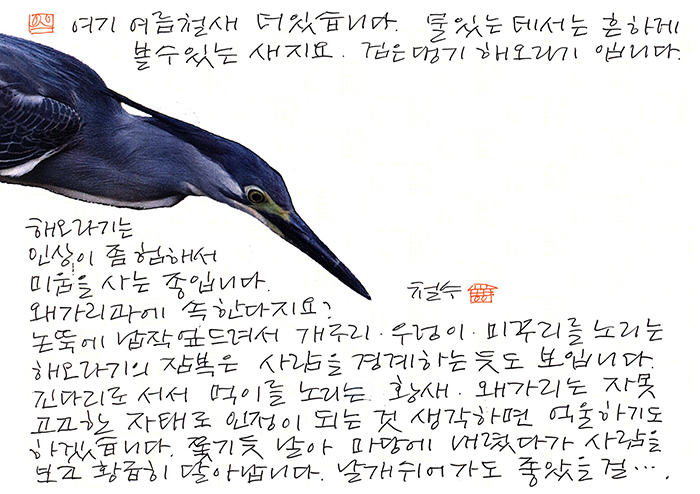 여기 여름철새 더있습니다. 물있는 데서는 흔하게
볼수있는 새지요. 검은댕기 해오라기 입니다.
해오라기는
인상이 좀 험해서
미움을 사는 종입니다.
왜가리과에 속한다지요?
철수
논뚝에 납작엎드려서 개구리·우렁이·미꾸리를 노리는
해오라기의 잠복은 사람을 경계하는듯도 보입니다.
긴다리로 서서 먹이를 노리는 황새·왜가리는 자못
고고한 자태로 인정이 되는 것 생각하면 억울하기도
하겠습니다. 쫓기듯 날아 마당에 내렸다가 사람을
보고 황급히 달아납니다. 날개쉬어가도 좋았을 걸….